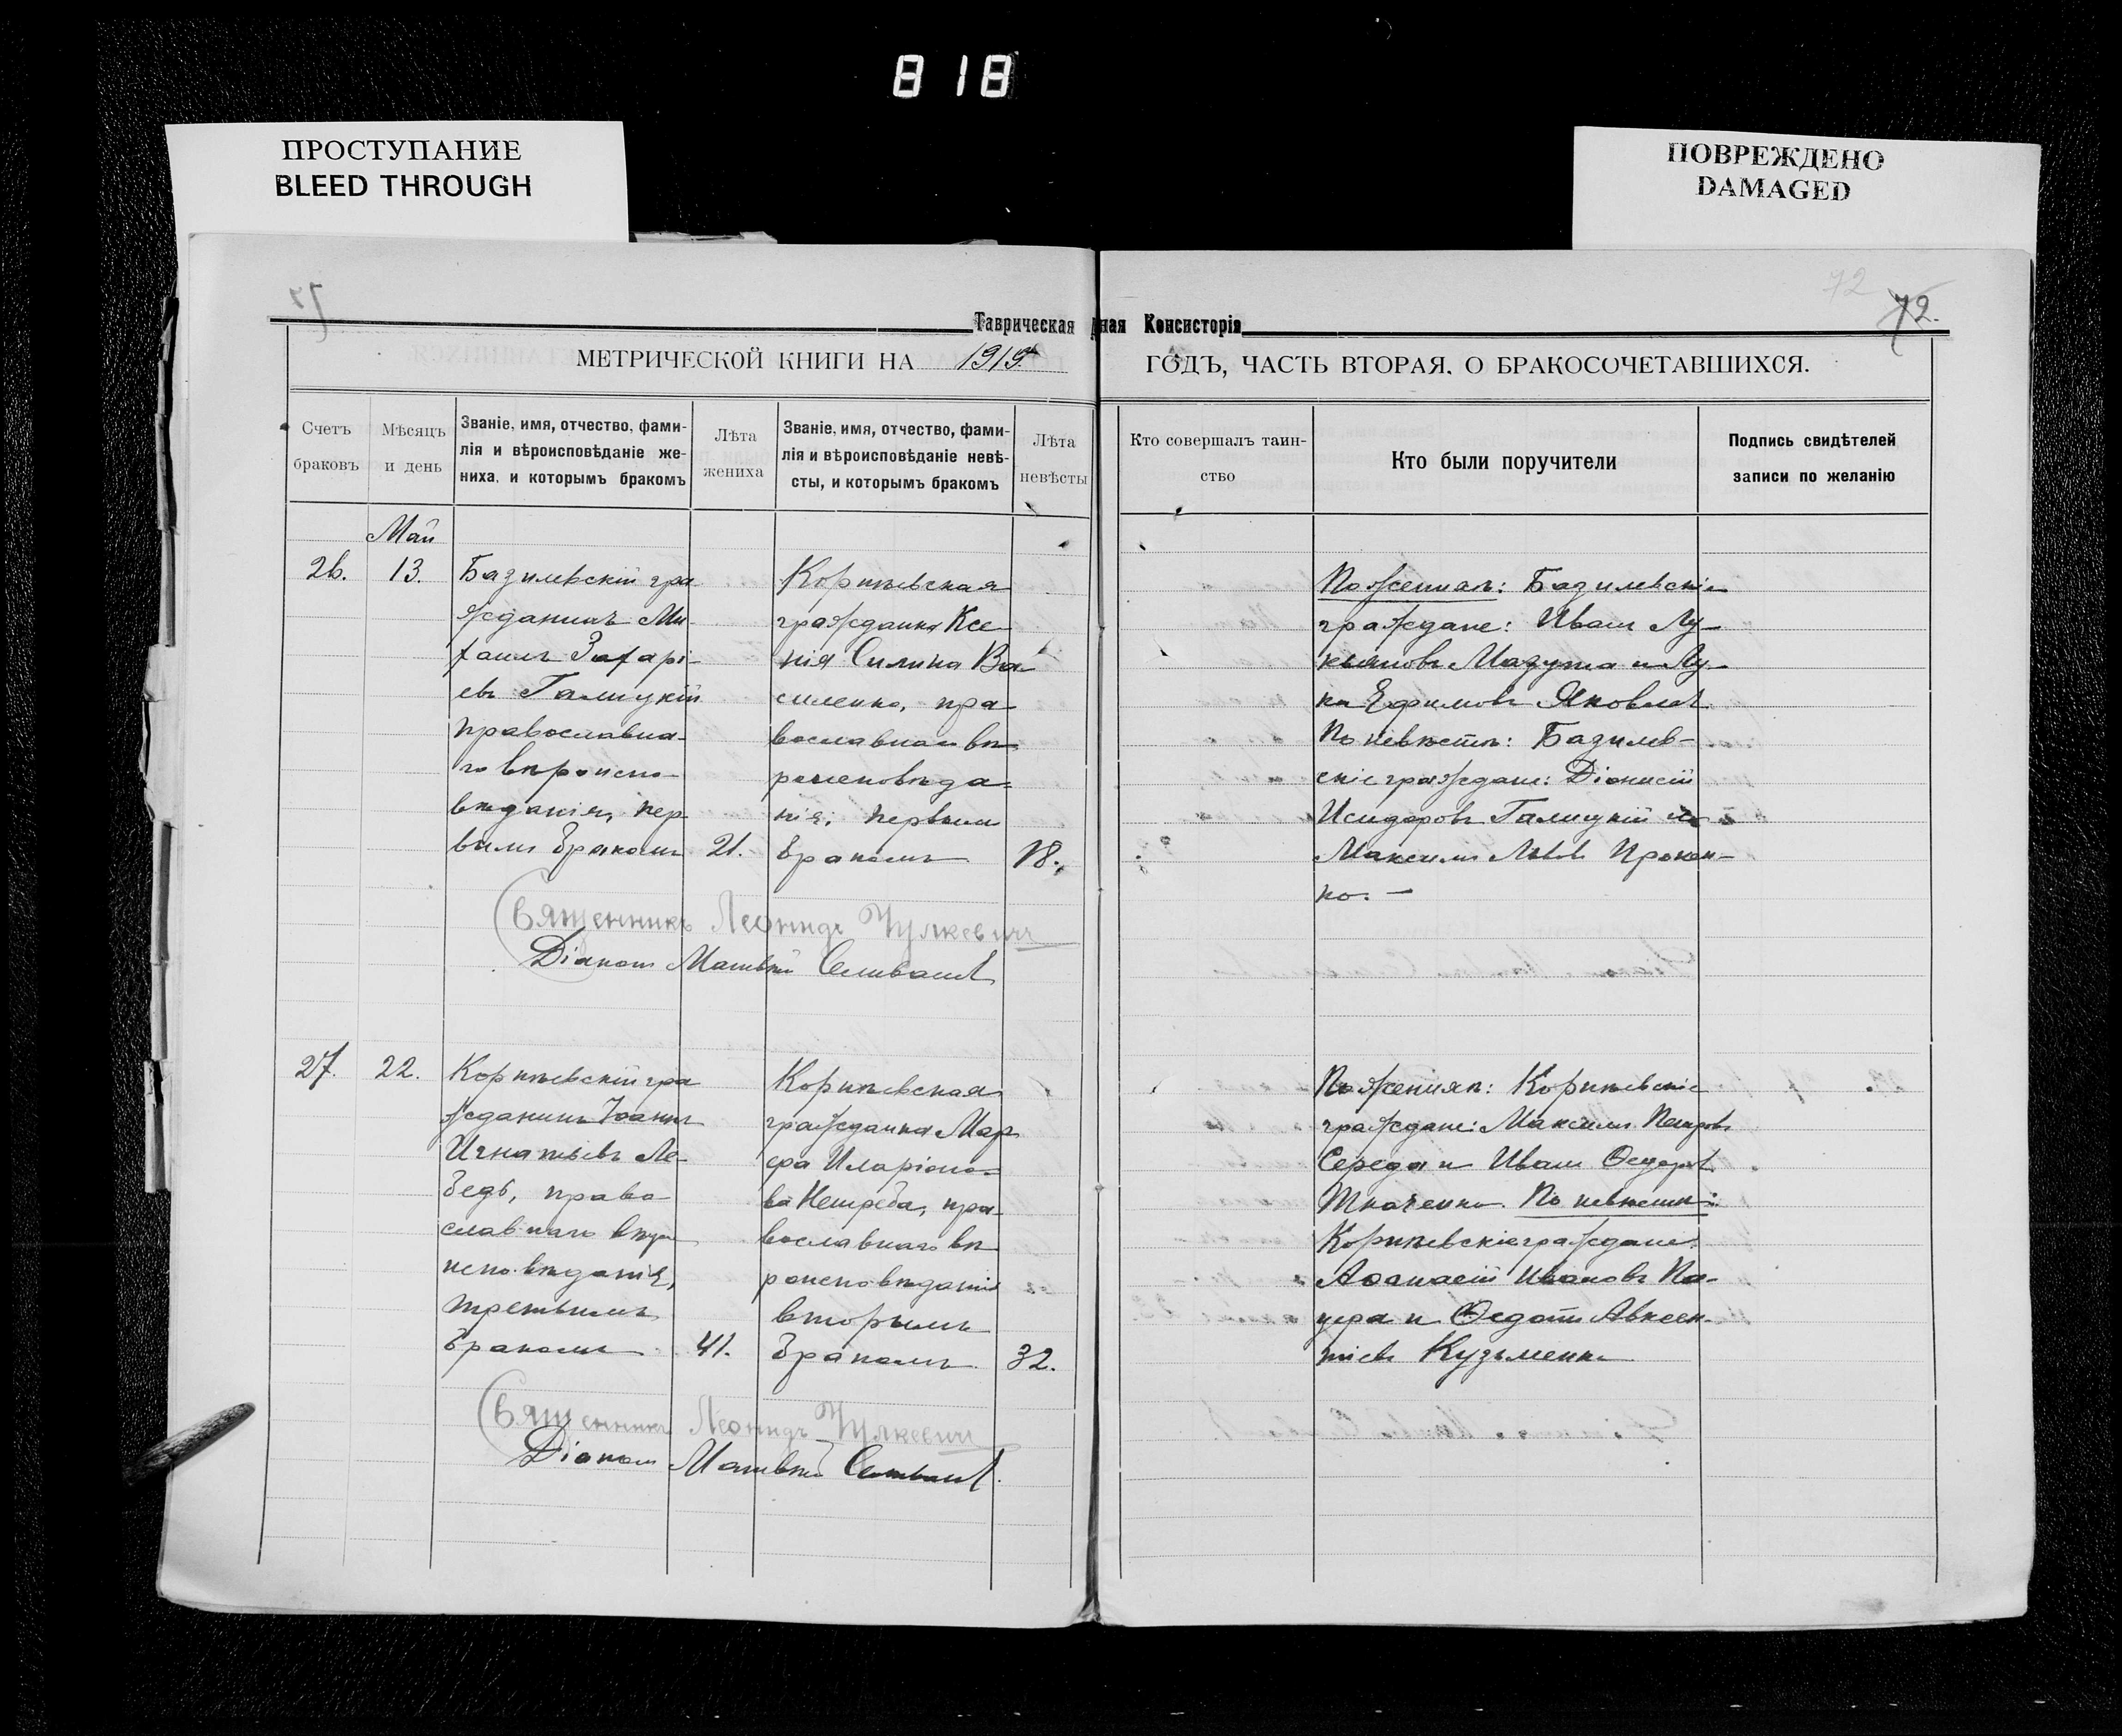 818
ПРОСТУПАНИЕ
BLEED THROUGH
ПОВРЕЖДЕНО
DAMAGED
72
72.
Таврическая ная Консисторія
МЕТРИЧЕСКОЙ КНИГИ НА 1919 ГОДЪ, ЧАСТЬ ВТОРАЯ, О БРАКОСОЧЕТАВШИХСЯ.
Счетъ
браковъ
Мѣсяцъ
и день
Званіе, имя, отчество, фами-
лія и вѣроисповѣданіе же-
ниха, и которымъ бракомъ
Лѣта
жениха
Званіе, имя, отчество, фами-
лія и вѣроисповѣданіе невѣ-
сты, и которымъ бракомъ
Лѣта
невѣсты
Кто совершалъ таин-
ство
Кто были поручители
Подпись свидѣтелей
записи по желанію
Май
26.
13.
Базилевскій гра
жданинъ Ми-
хаилъ Захарі-
евъ Галицкій
православна-
го вѣроиспо-
вѣданія, пер
вымъ бракомъ
21.
Корнѣевская
гражданка Ксе
нія Силина Ва
силенко, пра
вославнаго вѣ
роисповѣда=
нія, первымъ
бракомъ
18.
По женихѣ: Базилевскіе
граждане: Иванъ Лу-
кьяновъ Мазура и Лу-
ка Ефимовъ Яковлевъ
По невѣстѣ: Базилев-
скіе граждане: Діонисій
Исидоровъ Галицкій и
Максимъ Львовъ Прокоп-
ко. —
Священникъ Леонидъ Чулкевичъ
Діаконъ Матвѣй Селивановъ
27.
22.
Корнѣевскій гра
жданинъ Іоаннъ
Игнатьевъ Ле-
бедь, право
славнаго вѣро
исповѣданія,
третьимъ
бракомъ
41.
Корнѣевская
гражданка Мар
фа Иларіоно-
ва Нетреба, пра-
вославнаго вѣ
роисповѣданія
вторымъ
бракомъ
32.
По женихѣ: Корнѣевскіе
граждане: Максимъ Петровъ
Середа и Иванъ Ѳедоровъ
Ткаченко. По невѣстѣ:
Корнѣевскіе граждане:
Аѳанасій Ивановъ Па-
цера и Ѳедотъ Авксен-
тіевъ Кузьменко
Священникъ Леонидъ Чулкевичъ
Діаконъ Матвѣй Селивановъ.